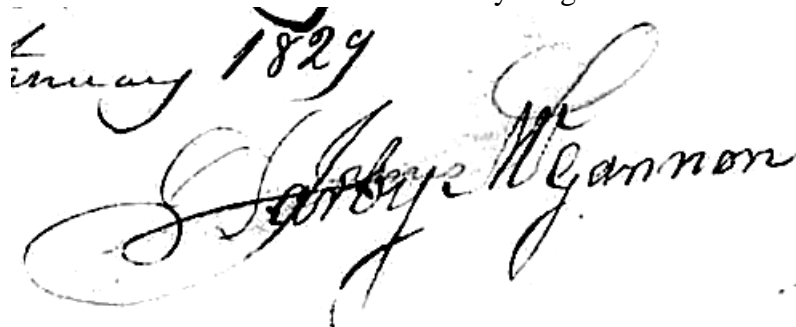 January 1829
Darby McGannon